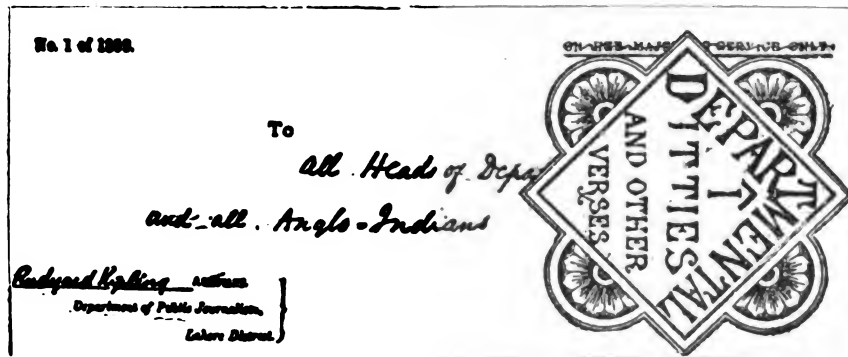 No. 1 of 1886.
ON HER MAJESTY'S SERVICE ONLY.
To
all Heads of Depa
and all Anglo-Indians
Rudyard Kipling ASSISTANT
Department of Public Journalism,
Lahore District.
DEPARTMENTAL
DITTIES
AND OTHER
VERSES